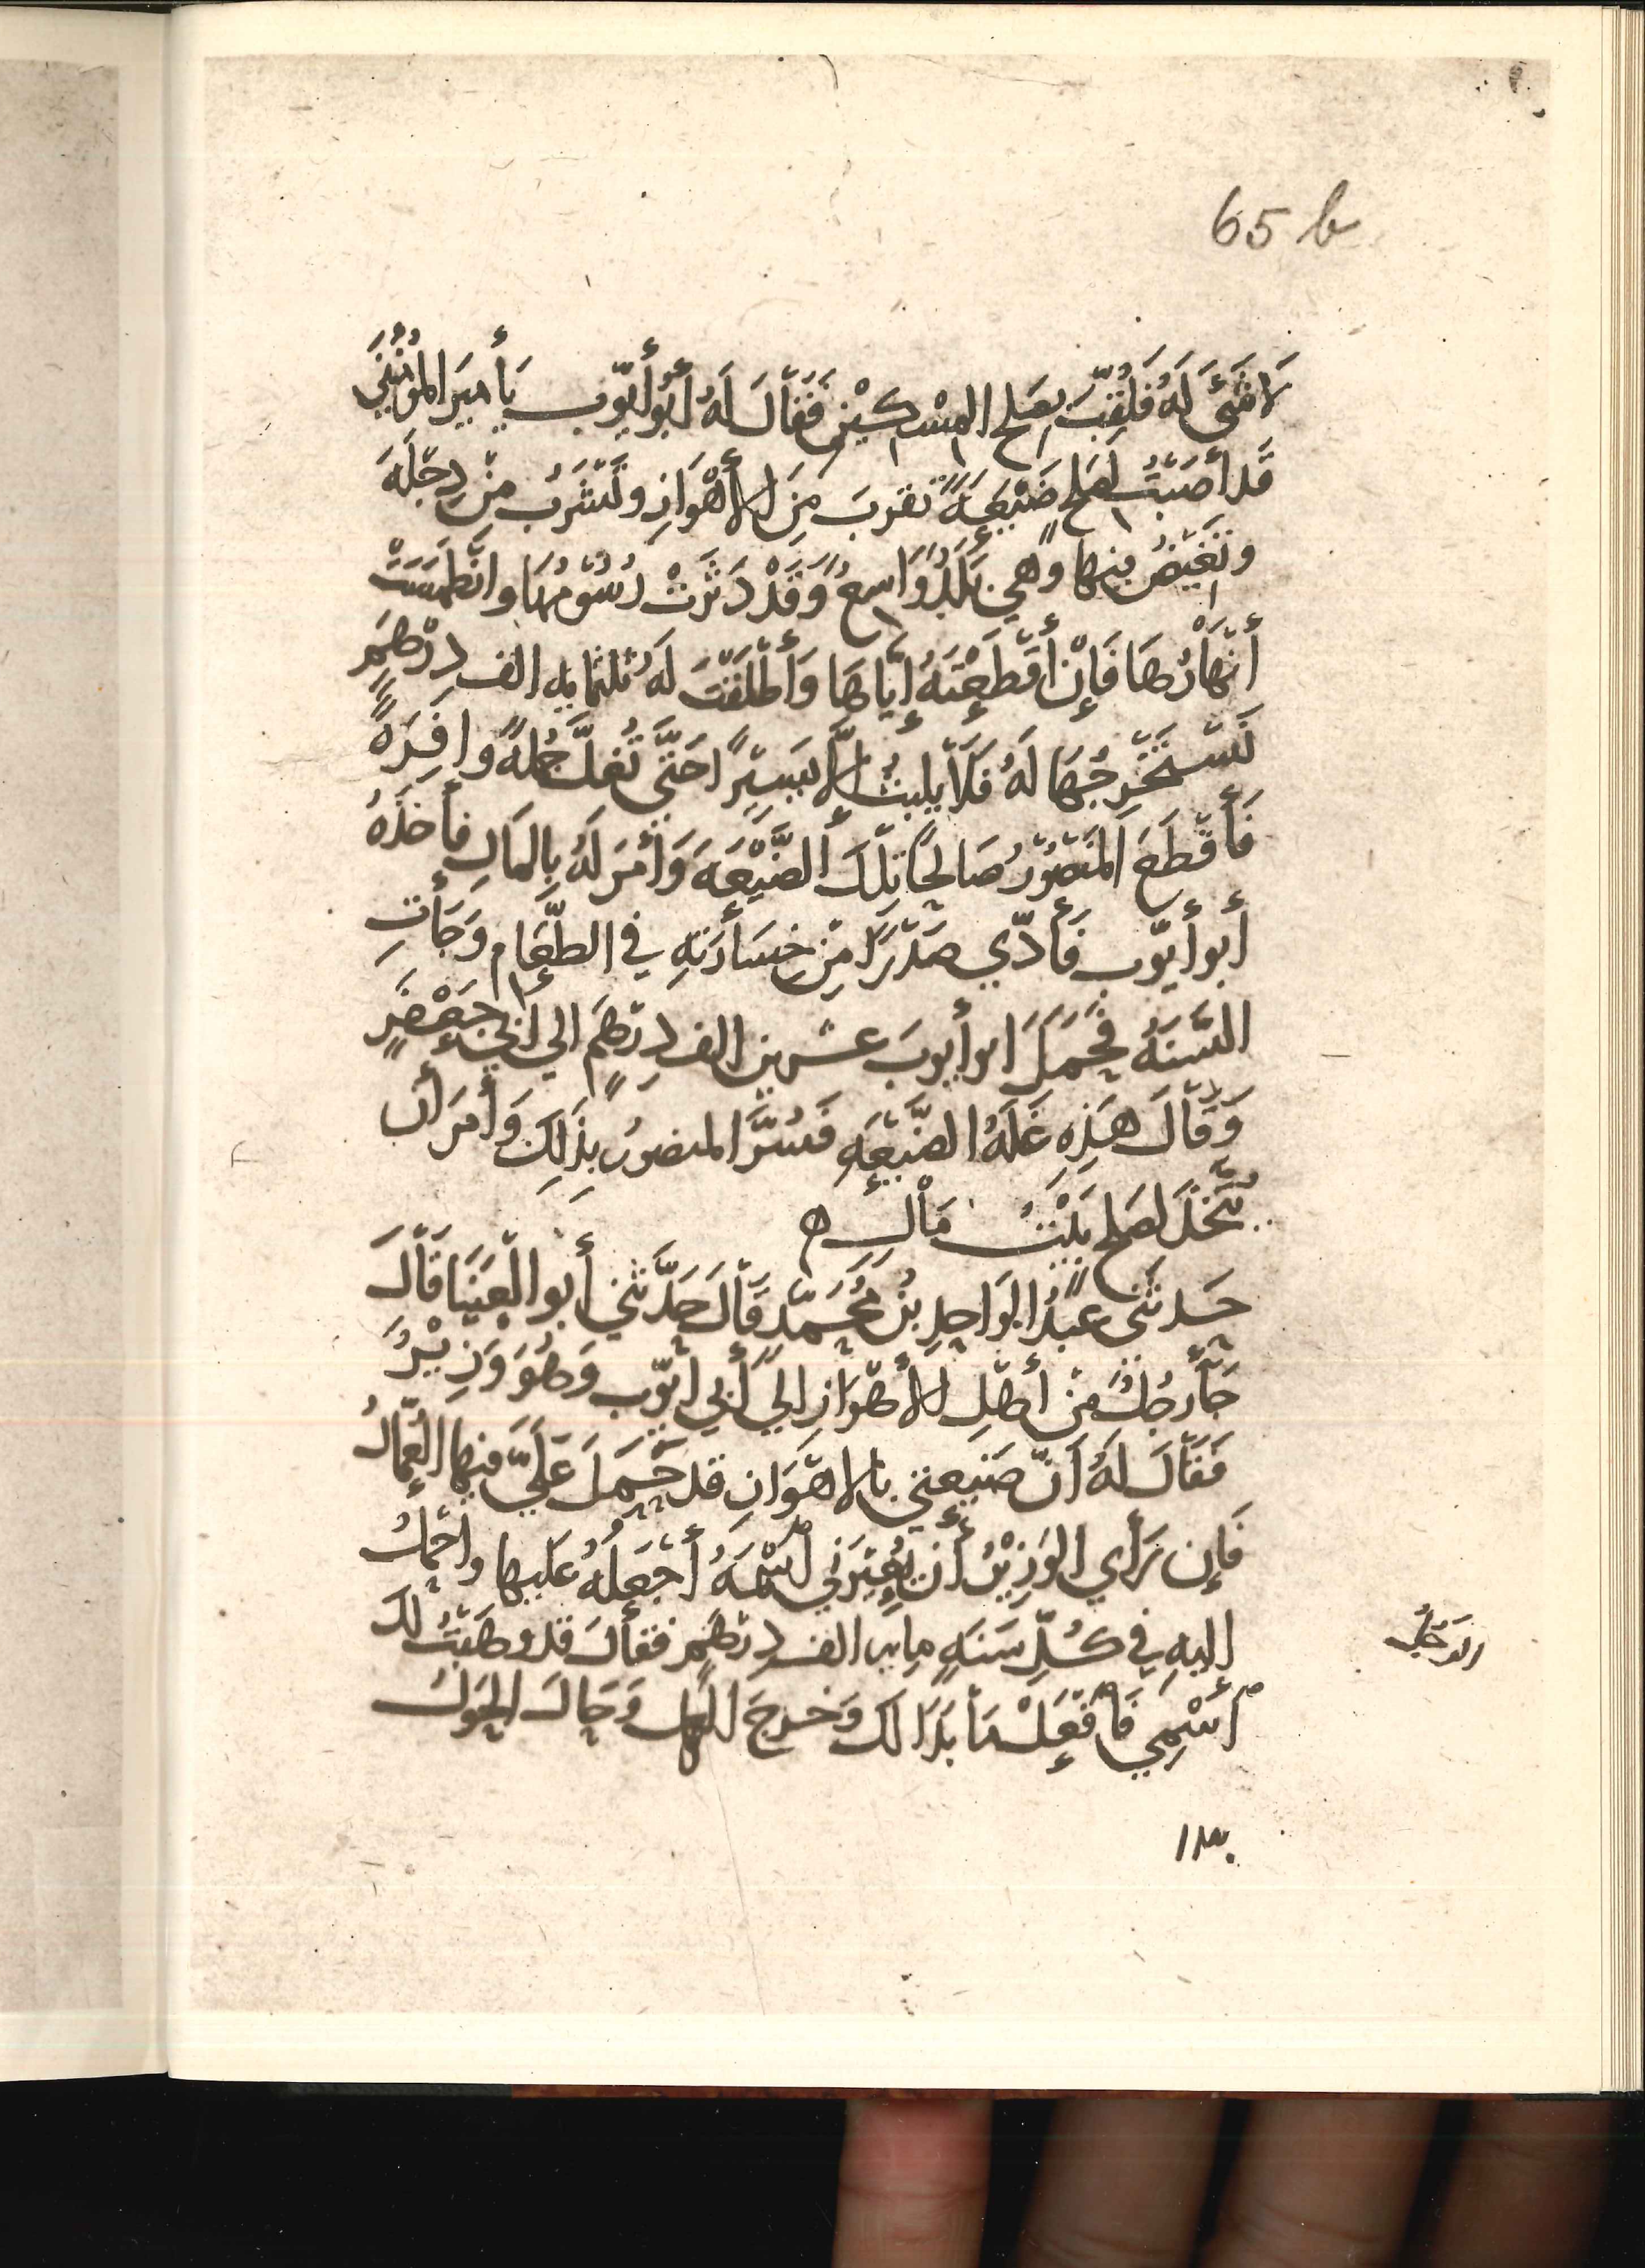 65 b
لَا شَئَ لَهُ فَلُقِّبَ بِصَلح المِسْكِيْنِ فَقَاْلَ لَهُ أَبُو أَيّوب يَأميَر المُؤْمِنِيَن
قَد أَصَبْتُ لِصَلحٍ ضَيْعَةً تَقرَبُ مِنَ الأَهْوَازِ وتَشْرَبُ مِنْ دِجْلَهَ
وتَغيْضُ فيها وهي بَلَدٌ وَاسِعٌ وَقَدْ دَثَرَتْ رُسُوْمُهَا وانْطَمَسَتْ
أَنْهَاْرُهَا فَإِنْ أَقْطَعْتَهُ إِيَّاهَا وَأَطْلَقْتَ لَهُ ثلثمايه الف دِرْهَمٍ
نَسْتَخْرِجُهَا لَهُ فَلَاْ يلبثُ إِلَّا يَسِيْرًا حَتَّى تُغِلَّ جُملةً وافِرَةً
فَأَقْطَعَ المَنْصُوْرُ صَالِحًا تِلْكَ الضَّيْعَهَ وَأَمَرَ لَهُ بِالمَالِ فأَخَذَهُ
أَبو أيّوب فَأَدّي صَدْرًا مِنْ خِسَاْرَتِهِ في الطَّعَام وَجَأَتِ
السَّنَهُ فَحَمَلَ ابو أيوبَ عشرين الف دِرْهَمٍ الي ابي جَعْفَرٍ
وَقَاْلَ هَذِهِ غَلَهُ الضَّيْعَهِ فَسُرَّ المنصورُ بِذَلِكَ وَأَمَرَ أن
يُتَّخذَ لصَلحٍ بَيْتُ مَاْلٍ ه
حَدثَني عَبْدُ الوَاحِدِ بْنُ مُحَمَّدٍ قَاْلَ حَدَّثَنِي أَبو العَيْنَا قَاْلَ
جَأَ رجُلٌ مِنْ أَهْلِ الأَهْوَازِ الي أَبي أَيّوب وَهُوَ وَزِيْرٌ
فَقَاْلَ لَهُ أَنّ ضَيْعتي بالاهْوَازِ قد حَمَلَ عَلَيّ فيها العُمّالُ
فَإِن رَأَي الوَزِيْرُ أَنْ يُعِيْرَنِي أسْمَهُ أَجْعَلهُ عَليها وأحملُ
إليهِ في كُلّ سَنَهٍ مايه الف دِرْهَمٍ فقاْلَ قد وهَبْتُ لك
أسْمِي فَافْعَلْ مَا بَدَا لَكَ وَخرجَ الرجل وَحَالَ الحَوْلُ
الرَجُل